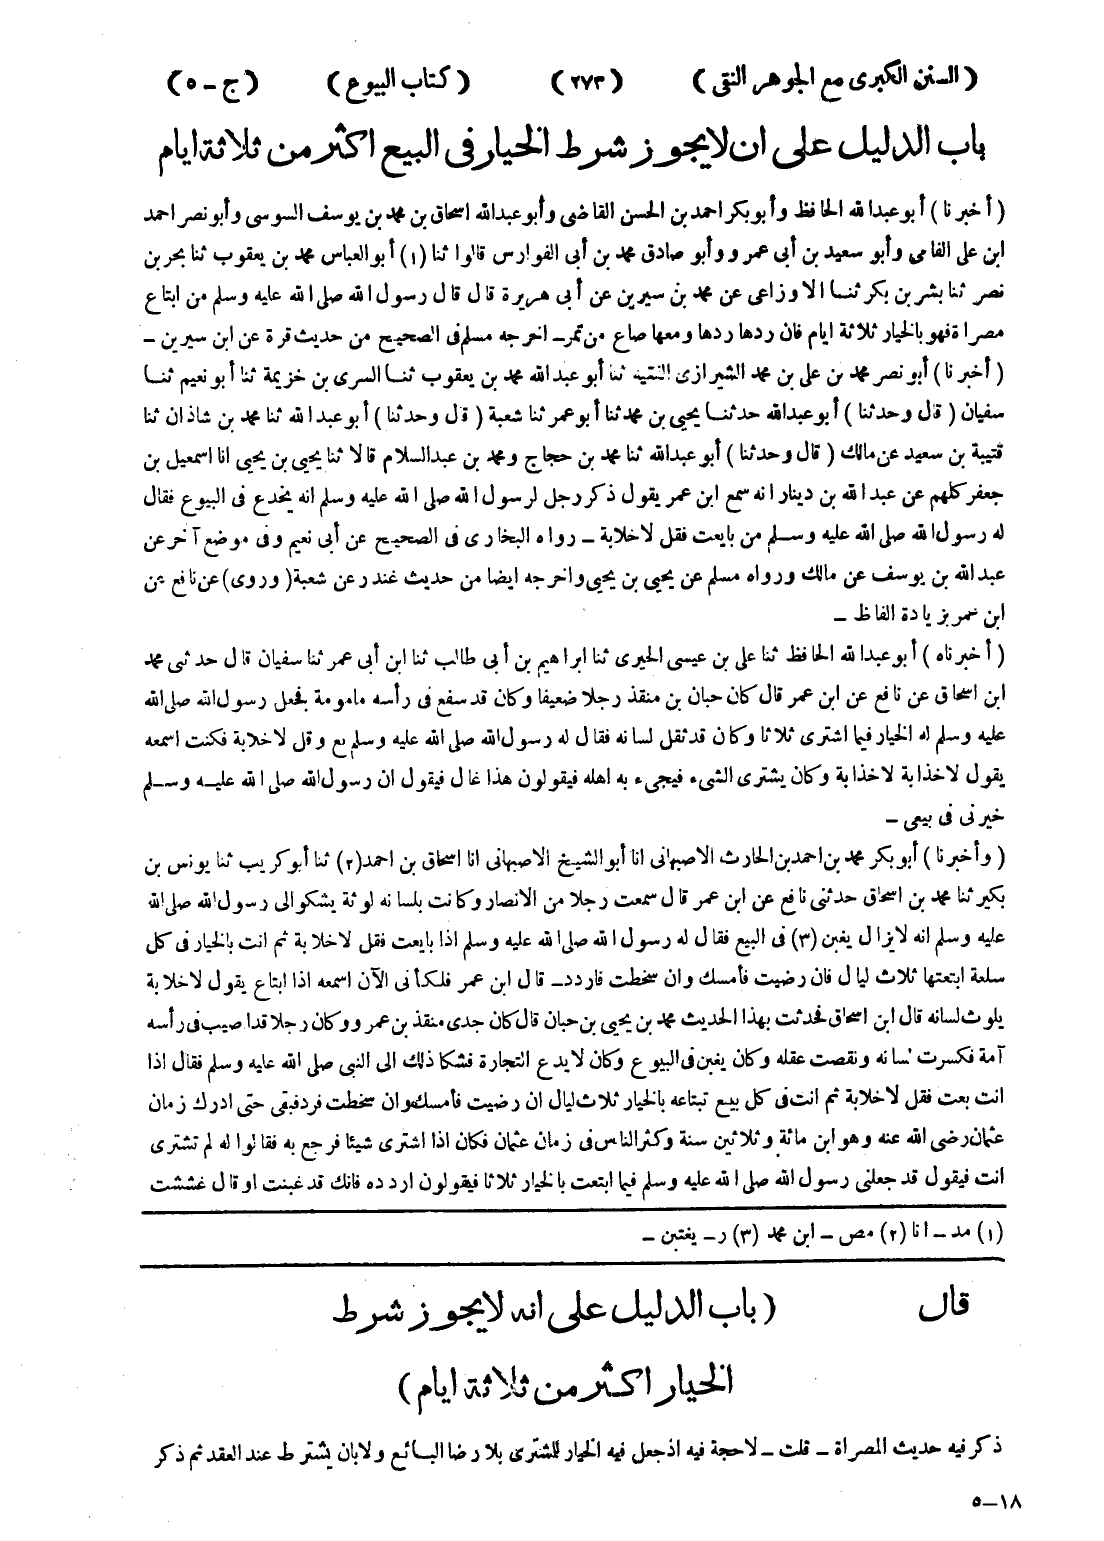 ( السنن الكبرى مع الجوهر النقى ) ( ٢٧٣ ) ( كتاب البيوع ) ( ج - ٥ )
باب الدليل على ان لا يجوز شرط الخيار فى البيع اكثر من ثلاثة ايام
( أخبرنا ) أبو عبدالله الحافظ وأبو بكر احمد بن الحسن القاضى وأبو عبدالله اسحاق بن محمد بن يوسف السوسى وأبو نصر احمد
ابن على الفامى وأبو سعيد بن أبى عمرو وأبو صادق محمد بن أبى الفوارس قالوا ثنا (١) أبو العباس محمد بن يعقوب ثنا بحر بن
نصر ثنا بشر بن بكر ثنا الاوزاعى عن محمد بن سيرين عن أبى هريرة قال قال رسول الله صلى الله عليه وسلم من ابتاع
مصراة فهو بالخيار ثلاثة ايام فان ردها ردها ومعها صاع من تمر - اخرجه مسلم فى الصحيح من حديث قرة عن ابن سيرين -
( أخبرنا ) أبو نصر محمد بن على بن محمد الشيرازى الفقيه ثنا أبو عبد الله محمد بن يعقوب ثنا السرى بن خزيمة ثنا أبو نعيم ثنا
سفيان ( قال وحدثنا ) أبو عبدالله حدثنا يحيى بن محمد ثنا أبو عمر ثنا شعبة ( قال وحدثنا ) أبو عبد الله ثنا محمد بن شاذان ثنا
قتيبة بن سعيد عن مالك ( قال وحدثنا ) أبو عبدالله ثنا محمد بن حجاج ومحمد بن عبدالسلام قالا ثنا يحيى بن يحيى انا اسمعيل بن
جعفر كلهم عن عبد الله بن دينار انه سمع ابن عمر يقول ذكر رجل لرسول الله صلى الله عليه وسلم انه يخدع فى البيوع فقال
له رسول الله صلى الله عليه وسلم من بايعت فقل لاخلابة - رواه البخارى فى الصحيح عن أبى نعيم وفى موضع آخر عن
عبدالله بن يوسف عن مالك ورواه مسلم عن يحيى بن يحيى واخرجه ايضا من حديث غندر عن شعبة ( وروى ) عن نافع عن
ابن عمر بزيادة الفاظ -
( أخبرناه ) أبو عبدالله الحافظ ثنا على بن عيسى الحيرى ثنا ابراهيم بن أبى طالب ثنا ابن أبى عمر ثنا سفيان قال حدثنى محمد
ابن اسحاق عن نافع عن ابن عمر قال كان حبان بن منقذ رجلا ضعيفا وكان قد سفع فى رأسه مامومة فجعل رسول الله صلى الله
عليه وسلم له الخيار فيما اشترى ثلاثا وكان قد ثقل لسانه فقال له رسول الله صلى الله عليه وسلم بع وقل لاخلابة فكنت اسمعه
يقول لاخذابة لاخذابة وكان يشترى الشىء فيجىء به اهله فيقولون هذا غال فيقول ان رسول الله صلى الله عليه وسلم
خيرنى فى بيعى -
( وأخبرنا ) أبو بكر محمد بن احمد بن الحارث الاصبهانى انا أبو الشيخ الاصبهانى انا اسحاق بن احمد (٢) ثنا أبو كريب ثنا يونس بن
بكير ثنا محمد بن اسحاق حدثنى نافع عن ابن عمر قال سمعت رجلا من الانصار وكانت بلسانه لوثة يشكو الى رسول الله صلى الله
عليه وسلم انه لايزال يغبن (٣) فى البيع فقال له رسول الله صلى الله عليه وسلم اذا بايعت فقل لاخلابة ثم انت بالخيار فى كل
سلعة ابتعتها ثلاث ليال فان رضيت فأمسك وان سخطت فاردد - قال ابن عمر فلكأنى الآن اسمعه اذا ابتاع يقول لاخلابة
يلوث لسانه قال ابن اسحاق فحدثت بهذا الحديث محمد بن يحيى بن حبان قال كان جدى منقذ بن عمرو وكان رجلا قد اصيب فى رأسه
آمة فكسرت لسانه ونقصت عقله وكان يغبن فى البيوع وكان لايدع التجارة فشكا ذلك الى النبى صلى الله عليه وسلم فقال اذا
انت بعت فقل لاخلابة ثم انت فى كل بيع تبتاعه بالخيار ثلاث ليال ان رضيت فأمسك وان سخطت فرد فبقى حتى ادرك زمان
عثمان رضى الله عنه وهو ابن مائة وثلاثين سنة وكثر الناس فى زمان عثمان فكان اذا اشترى شيئا فرجع به فقالوا له لم تشترى
انت فيقول قد جعلنى رسول الله صلى الله عليه وسلم فيما ابتعت بالخيار ثلاثا فيقولون اردده فانك قد غبنت او قال غششت
(١) مد - انا (٢) مص - ابن محمد (٣) ر - يغتبن -
قال ( باب الدليل على انه لا يجوز شرط
الخيار اكثر من ثلاثة ايام )
ذكر فيه حديث المصراة - قلت - لاحجة فيه اذ جعل فيه الخيار للمشترى بلا رضا البائع ولابان يشترط عند العقد ثم ذكر
١٨-٥